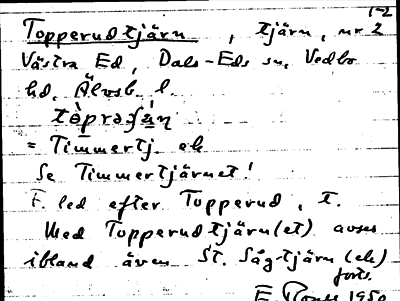 1-2
Topperudtjärn, tjärn, nr 2
Västra Ed, Dals-Eds sn, Vedbo
hd, Älvsb. l.
= Timmertj. ek
Se Timmertjärnet!
F. led efter Topperud, t.
Med Topperudtjärn(et) avses
ibland även St. Sågtjärn (ek)
forts.
1950